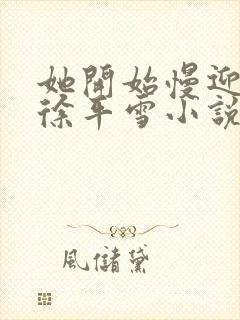 她開始慢迎
徐年雪小說
風儲黛